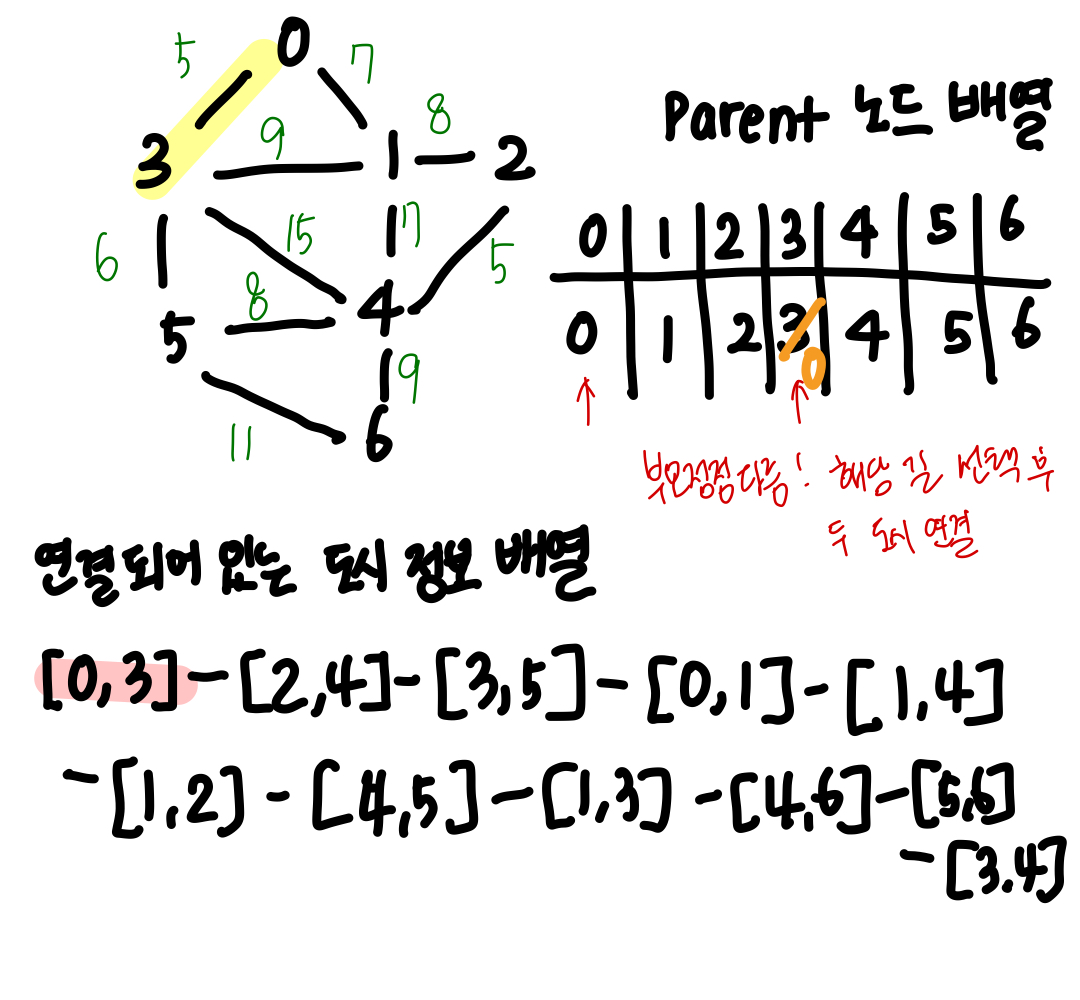 0
5
7
9
8
3
1
2
6
15
7
5
8
5
4
9
11
6
Parent 노드 배열
0 1 2 3 4 5 6
0 1 2 3 0 4 5 6
부모정점 다름! 해당 길 선택 후
두 도시 연결
연결되어 있는 도시 정보 배열
[0,3] - [2,4] - [3,5] - [0,1] - [1,4]
- [1,2] - [4,5] - [1,3] - [4,6] - [5,6]
- [3.4]